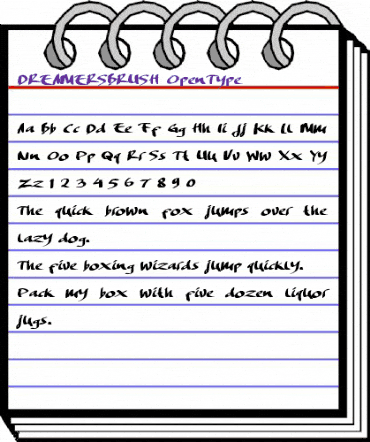 DREAMERSBRUSH OpenType
Aa Bb Cc Dd Ee Ff Gg Hh Ii Jj Kk Ll Mm
Nn Oo Pp Qq Rr Ss Tt Uu Vv Ww Xx Yy
Zz 1 2 3 4 5 6 7 8 9 0
The quick brown fox jumps over the
lazy dog.
The five boxing wizards jump quickly.
Pack my box with five dozen liquor
jugs.